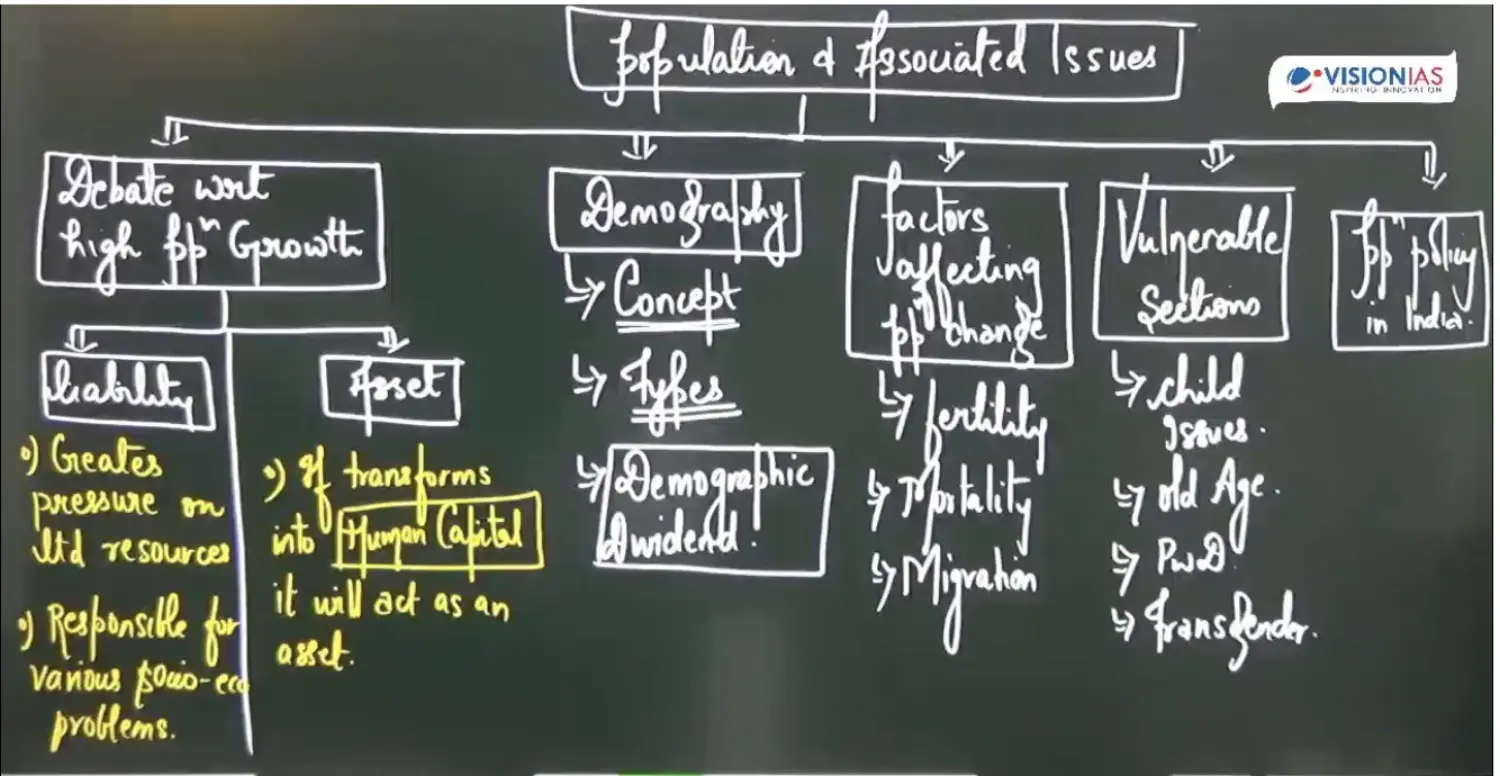 Population & Associated Issues
VISIONIAS
INSPIRING INNOVATION
Debate wrt
high ppⁿ Growth
Liability
o) Creates
pressure on
ltd resources
o) Responsible for
various socio-eco
problems.
Asset
o) If transforms
into Human Capital
it will act as an
asset.
Demography
↳ Concept
↳ Types
↳ Demographic
Dividend.
Factors
affecting
ppⁿ change
↳ Fertility
↳ Mortality
↳ Migration
Vulnerable
Sections
↳ Child
Issues.
↳ Old Age.
↳ PwD.
↳ Transgender.
ppⁿ policy
in India.